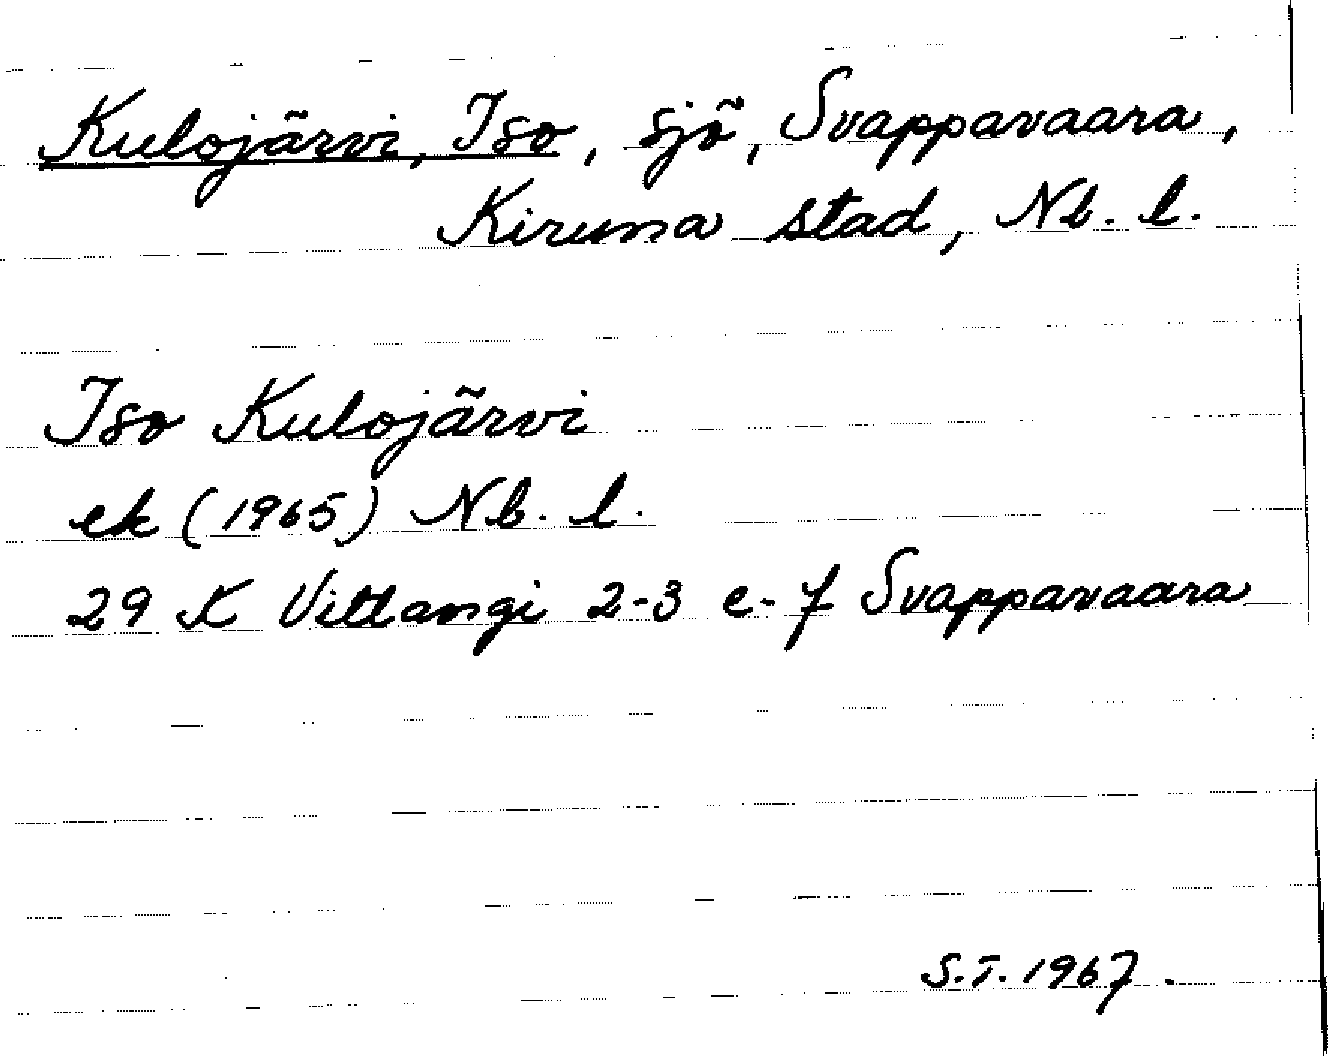 Kulojärvi, Iso, sjö, Svappavaara,
Kiruna stad, Nb. l.
Iso Kulojärvi
ek (1965) Nb. l.
29 K Vittangi 2-3 e-f Svappavaara
S.T. 1967.